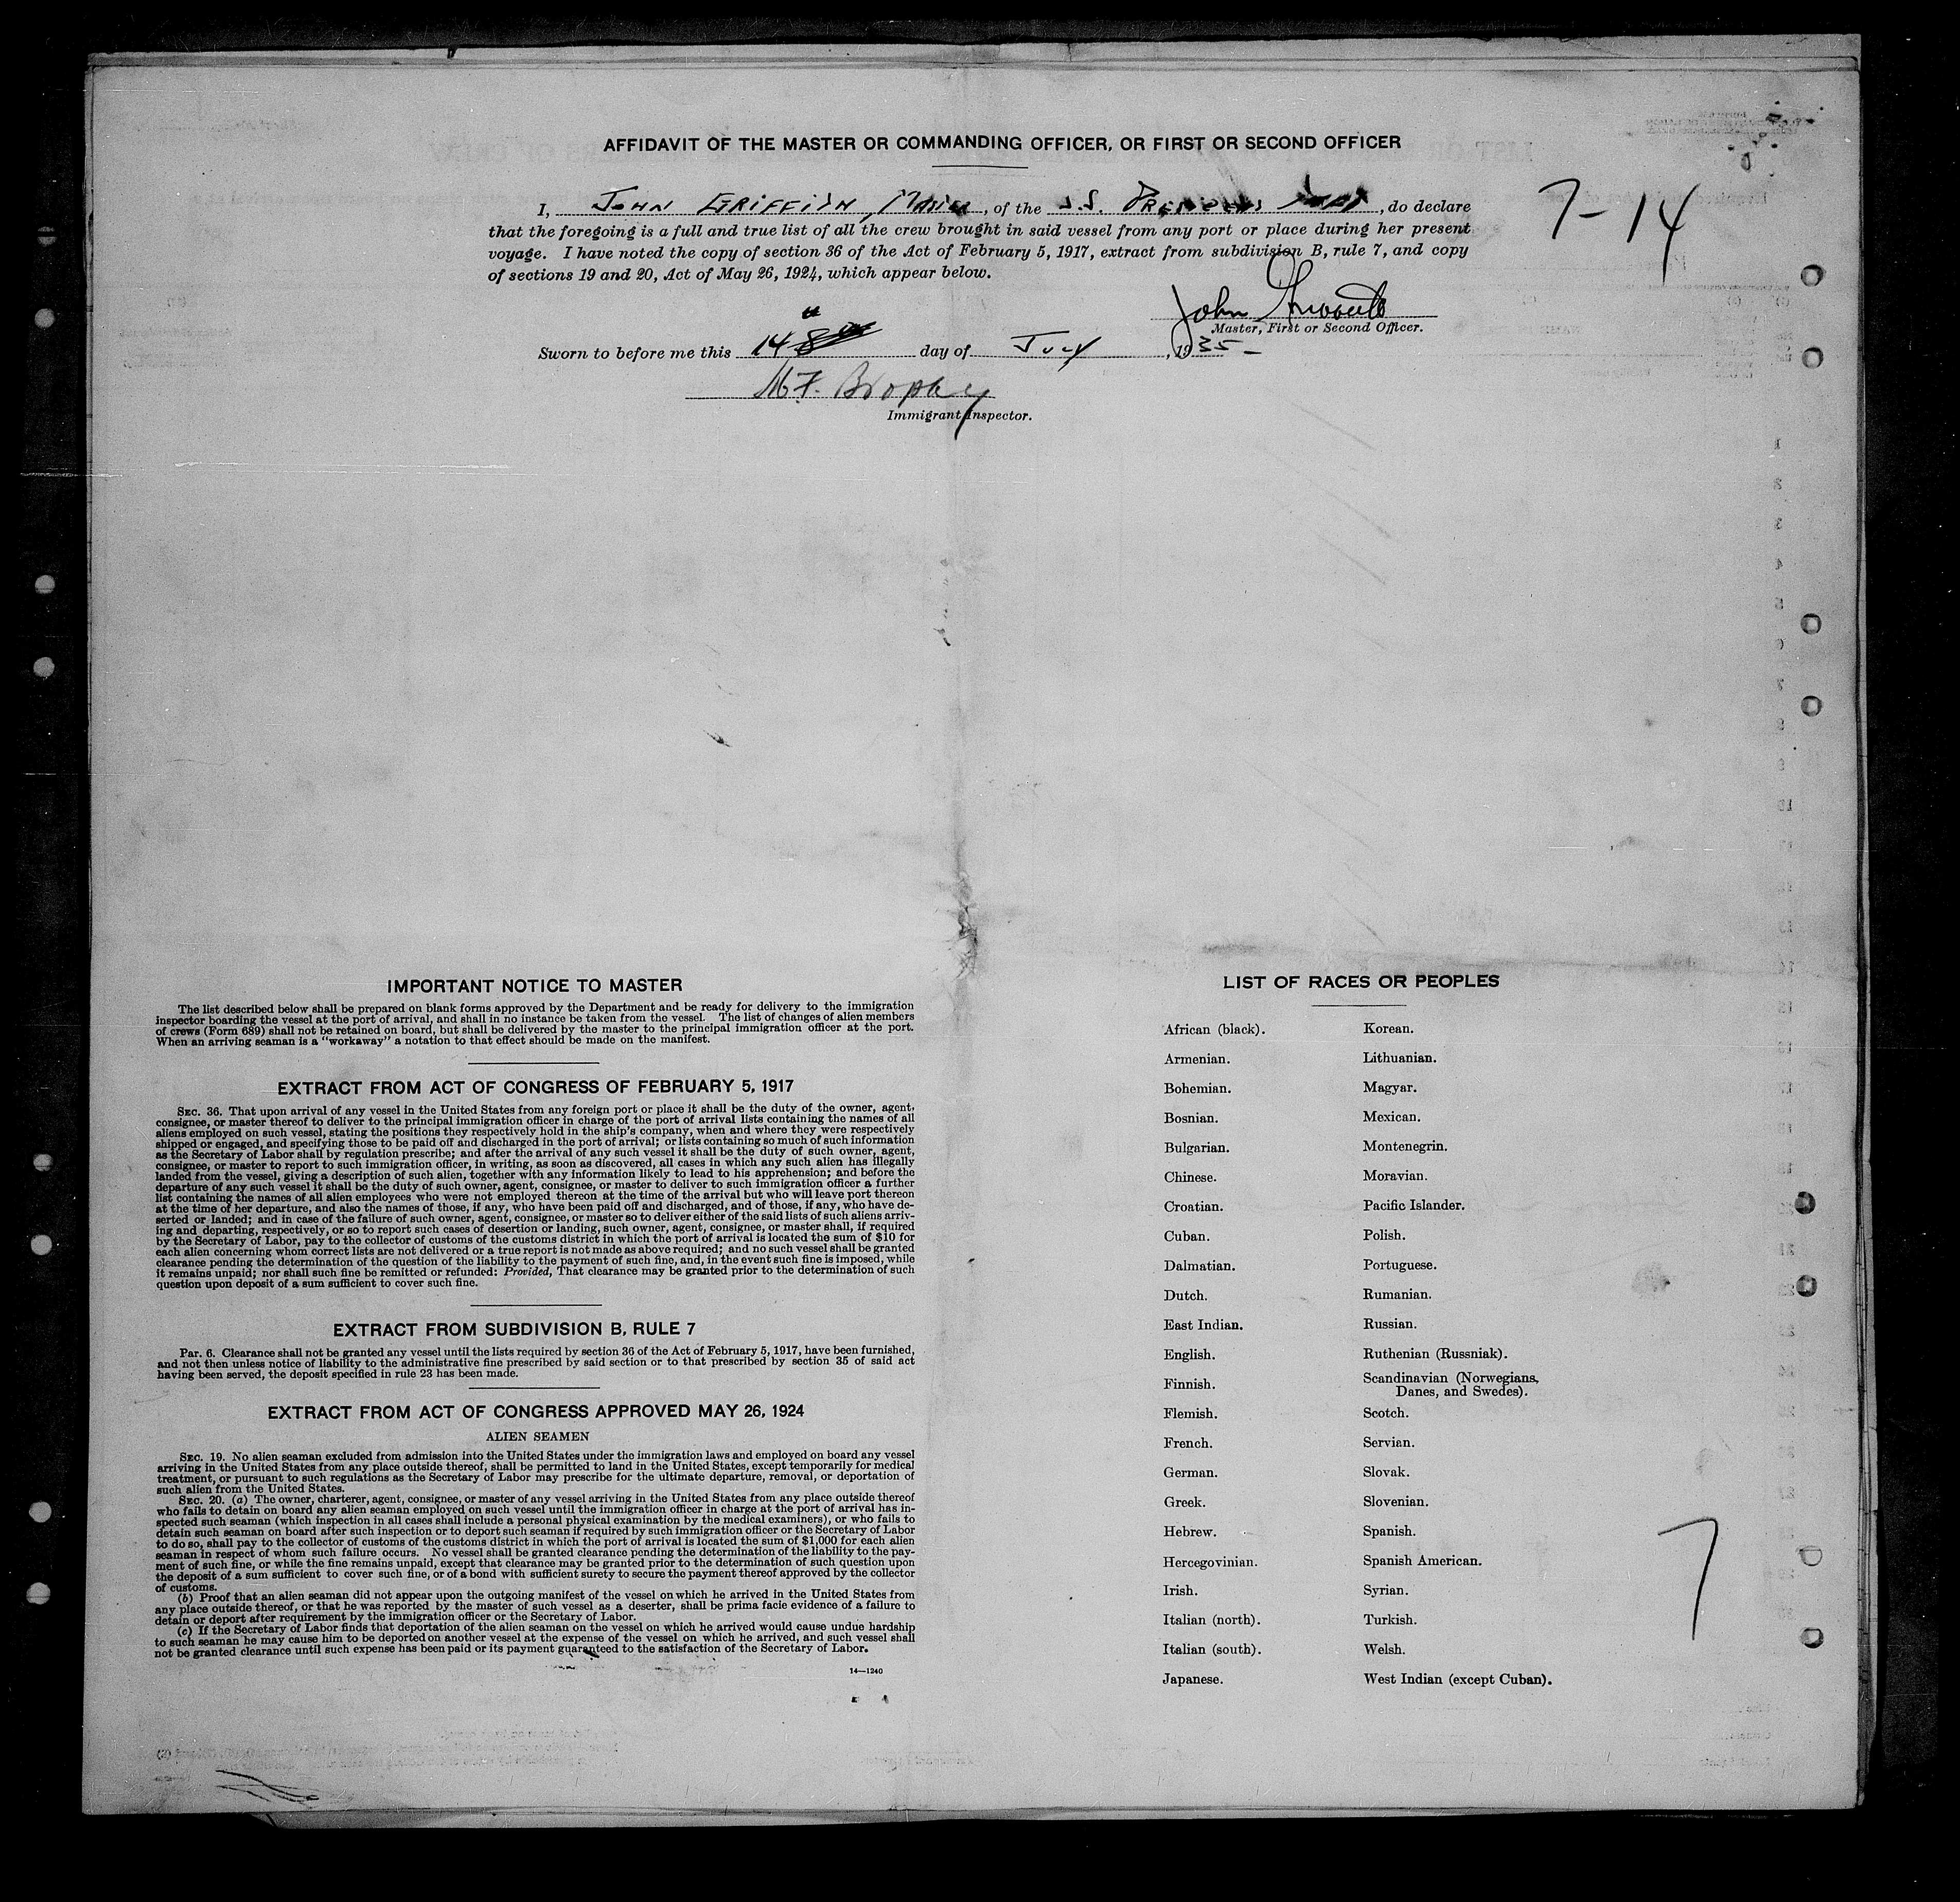 AFFIDAVIT OF THE MASTER OR COMMANDING OFFICER, OR FIRST OR SECOND OFFICER
I, John Griffith, of the S.S. President, do declare
that the foregoing is a full and true list of all the crew brought in said vessel from any port or place during her present
voyage. I have noted the copy of section 36 of the Act of February 5, 1917, extract from subdivision B, rule 7, and copy
of sections 19 and 20, Act of May 26, 1924, which appear below.
7-14
John
Master, First or Second Officer.
Sworn to before me this 14 day of July, 1935
M.F. Brophy
Immigrant Inspector.
IMPORTANT NOTICE TO MASTER
The list described below shall be prepared on blank forms approved by the Department and be ready for delivery to the immigration
inspector boarding the vessel at the port of arrival, and shall in no instance be taken from the vessel. The list of changes of alien members
of crews (Form 689) shall not be retained on board, but shall be delivered by the master to the principal immigration officer at the port.
When an arriving seaman is a "workaway" a notation to that effect should be made on the manifest.
EXTRACT FROM ACT OF CONGRESS OF FEBRUARY 5, 1917
SEC. 36. That upon arrival of any vessel in the United States from any foreign port or place it shall be the duty of the owner, agent,
consignee, or master thereof to deliver to the principal immigration officer in charge of the port of arrival lists containing the names of all
aliens employed on such vessel, stating the positions they respectively hold in the ship's company, when and where they were respectively
shipped or engaged, and specifying those to be paid off and discharged in the port of arrival; or lists containing so much of such information
as the Secretary of Labor shall by regulation prescribe; and after the arrival of any such vessel it shall be the duty of such owner, agent,
consignee, or master to report to such immigration officer, in writing, as soon as discovered, all cases in which any such alien has illegally
landed from the vessel, giving a description of such alien, together with any information likely to lead to his apprehension; and before the
departure of any such vessel it shall be the duty of such owner, agent, consignee, or master to deliver to such immigration officer a further
list containing the names of all alien employees who were not employed thereon at the time of the arrival but who will leave port thereon
at the time of her departure, and also the names of those, if any, who have been paid off and discharged, and of those, if any, who have de-
serted or landed; and in case of the failure of such owner, agent, consignee, or master so to deliver either of the said lists of such aliens arriv-
ing and departing, respectively, or so to report such cases of desertion or landing, such owner, agent, consignee, or master shall, if required
by the Secretary of Labor, pay to the collector of customs of the customs district in which the port of arrival is located the sum of $10 for
each alien concerning whom correct lists are not delivered or a true report is not made as above required; and no such vessel shall be granted
clearance pending the determination of the question of the liability to the payment of such fine, and, in the event such fine is imposed, while
it remains unpaid; nor shall such fine be remitted or refunded: Provided, That clearance may be granted prior to the determination of such
question upon deposit of a sum sufficient to cover such fine.
EXTRACT FROM SUBDIVISION B, RULE 7
Par. 6. Clearance shall not be granted any vessel until the lists required by section 36 of the Act of February 5, 1917, have been furnished,
and not then unless notice of liability to the administrative fine prescribed by said section or to that prescribed by section 35 of said act
having been served, the deposit specified in rule 23 has been made.
EXTRACT FROM ACT OF CONGRESS APPROVED MAY 26, 1924
ALIEN SEAMEN
SEC. 19. No alien seaman excluded from admission into the United States under the immigration laws and employed on board any vessel
arriving in the United States from any place outside thereof, shall be permitted to land in the United States, except temporarily for medical
treatment, or pursuant to such regulations as the Secretary of Labor may prescribe for the ultimate departure, removal, or deportation of
such alien from the United States.
SEC. 20. (a) The owner, charterer, agent, consignee, or master of any vessel arriving in the United States from any place outside thereof
who fails to detain on board any alien seaman employed on such vessel until the immigration officer in charge at the port of arrival has in-
spected such seaman (which inspection in all cases shall include a personal physical examination by the medical examiners), or who fails to
detain such seaman on board after such inspection or to deport such seaman if required by such immigration officer or the Secretary of Labor
to do so, shall pay to the collector of customs of the customs district in which the port of arrival is located the sum of $1,000 for each alien
seaman in respect of whom such failure occurs. No vessel shall be granted clearance pending the determination of the liability to the pay-
ment of such fine, or while the fine remains unpaid, except that clearance may be granted prior to the determination of such question upon
the deposit of a sum sufficient to cover such fine, or of a bond with sufficient surety to secure the payment thereof approved by the collector
of customs.
(b) Proof that an alien seaman did not appear upon the outgoing manifest of the vessel on which he arrived in the United States from
any place outside thereof, or that he was reported by the master of such vessel as a deserter, shall be prima facie evidence of a failure to
detain or deport after requirement by the immigration officer or the Secretary of Labor.
(c) If the Secretary of Labor finds that deportation of the alien seaman on the vessel on which he arrived would cause undue hardship
to such seaman he may cause him to be deported on another vessel at the expense of the vessel on which he arrived, and such vessel shall
not be granted clearance until such expense has been paid or its payment guaranteed to the satisfaction of the Secretary of Labor.
14—1240
LIST OF RACES OR PEOPLES
African (black).
Armenian.
Bohemian.
Bosnian.
Bulgarian.
Chinese.
Croatian.
Cuban.
Dalmatian.
Dutch.
East Indian.
English.
Finnish.
Flemish.
French.
German.
Greek.
Hebrew.
Hercegovinian.
Irish.
Italian (north).
Italian (south).
Japanese.
Korean.
Lithuanian.
Magyar.
Mexican.
Montenegrin.
Moravian.
Pacific Islander.
Polish.
Portuguese.
Rumanian.
Russian.
Ruthenian (Russniak).
Scandinavian (Norwegians,
Danes, and Swedes).
Scotch.
Servian.
Slovak.
Slovenian.
Spanish.
Spanish American.
Syrian.
Turkish.
Welsh.
West Indian (except Cuban).
7